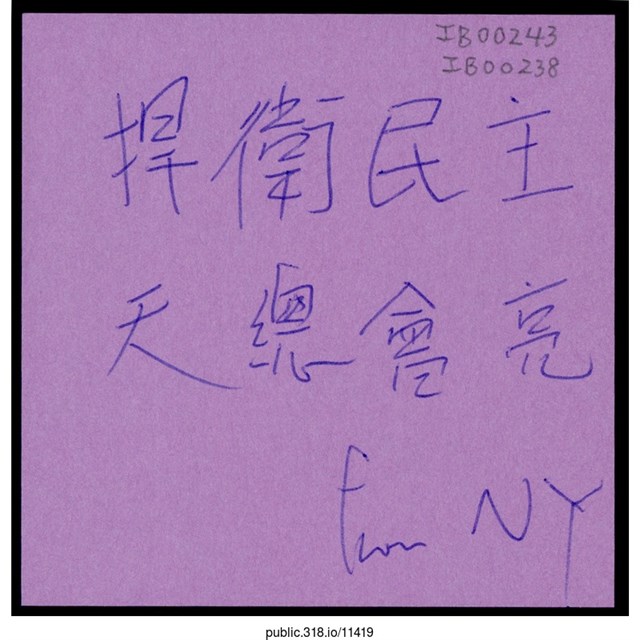 IB00243
IB00238
捍衛民主
天總會亮
from NY
public.318.io/11419